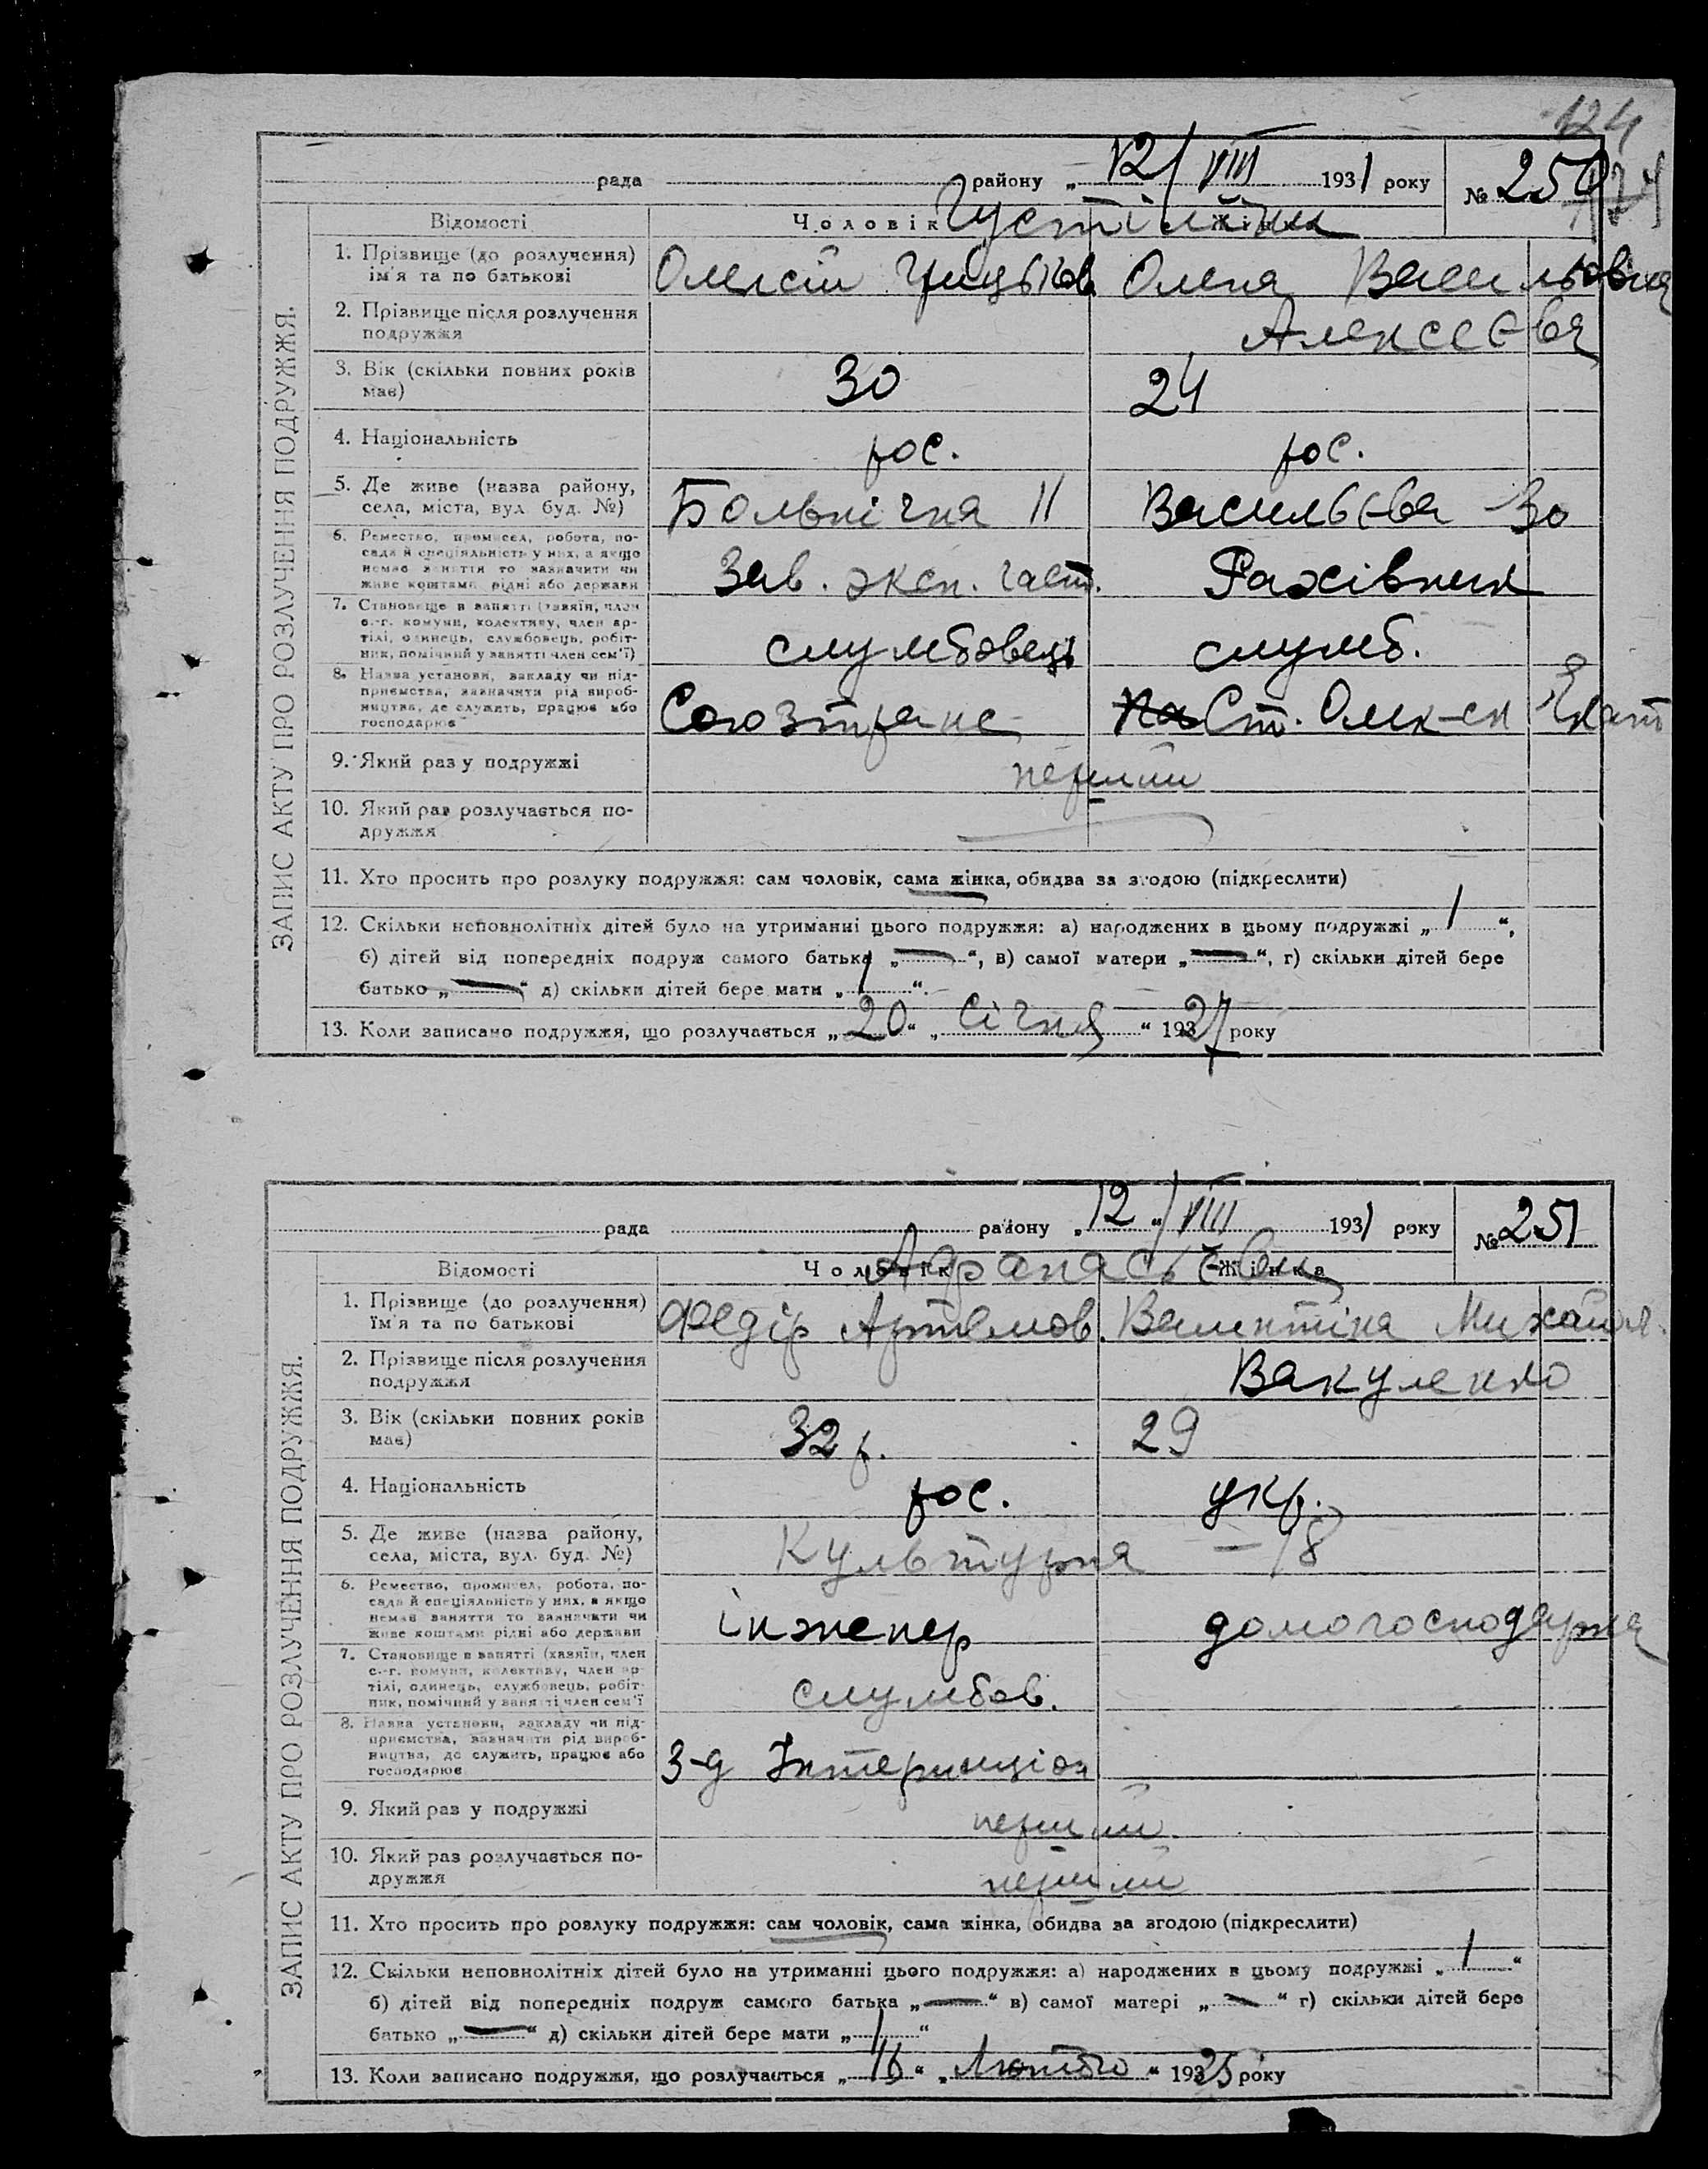 124
рада района „12/VIII 1931 року № 250
Відомості Чоловік Жінка
Устімчик
1. Прізвище (до розлучення) ім'я та по батькові Олексій Грицьков. Олена Васильовна
2. Прізвище після розлучення подружжя Алексєєва
3. Вік (скільки повних років має) 30 24
4. Національність рос. рос.
5. Де живе (назва району, села, міста, вул. буд. №) Больнічна 11 Васильєва - 30
6. Ремество, промисел, робота, посада й спеціяльність у них, а якщо немає заняття то зазначити чи живе коштами рідні або держави Зав. эксп. част. Рахівник
7. Становище в занятті (хазяїн, член с.-г. комуни, колективу, член артілі, одинець, службовець, робітник, помічний у занятті член сем'ї) службовець служб.
8. Назва установи, закладу чи підприємства, зазначити рід виробництва, де служить, працює або господарює Союзтранс Ст.
9. Який раз у подружжі перший
10. Який раз розлучається подружжя
11. Хто просить про розлуку подружжя: сам чоловік, сама жінка, обидва за згодою (підкреслити)
12. Скільки неповнолітніх дітей було на утриманні цього подружжя: а) народжених в цьому подружжі „ 1 “,
б) дітей від попередніх подруж самого батька „ — “, в) самої матери „ — “, г) скільки дітей бере
батько „ — “ д) скільки дітей бере мати „ 1 “.
13. Коли записано подружжя, що розлучається „ 20 “ „ Січня “ 1927 року
ЗАПИС АКТУ ПРО РОЗЛУЧЕННЯ ПОДРУЖЖЯ.
рада району „ 12 “ VIII 1931 року № 251
Відомості Чоловік Жінка
Афанасьєви
1. Прізвище (до розлучення) ім'я та по батькові Федір Артемов. Валентіна Михайл.
2. Прізвище після розлучення подружжя Вакуленко
3. Вік (скільки повних років має) 32 р. 29
4. Національність рос. укр.
5. Де живе (назва району, села, міста, вул. буд. №) Культурна - 18
6. Ремество, промисел, робота, посада й спеціяльність у них, а якщо немає заняття то зазначити чи живе коштами рідні або держави інженер домогосподарка
7. Становище в занятті (хазяїн, член с.-г. комуни, колективу, член артілі, одинець, службовець, робітник, помічний у занятті член сем'ї службов.
8. Назва установи, закладу чи підприємства, зазначити рід виробництва, де служить, працює або господарює З-д Інтернаціон
9. Який раз у подружжі перший
10. Який раз розлучається подружжя перший
11. Хто просить про розлуку подружжя: сам чоловік, сама жінка, обидва за згодою (підкреслити)
12. Скільки неповнолітніх дітей було на утриманні цього подружжя: а) народжених в цьому подружжі „ 1 “
б) дітей від попередніх подруж самого батька „ — “ в) самої матері „ — “ г) скільки дітей бере
батько „ — “ д) скільки дітей бере мати „ 1 “
13. Коли записано подружжя, що розлучається „ 16 “ „ Лютого “ 1925 року
ЗАПИС АКТУ ПРО РОЗЛУЧЕННЯ ПОДРУЖЖЯ.